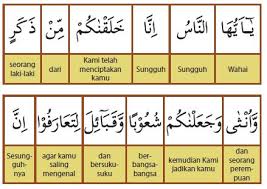 يٰٓاَيُّهَا النَّاسُ اِنَّا خَلَقْنٰكُمْ مِّنْ ذَكَرٍ
Wahai
Sungguh
Sungguh
Kami telah
menciptakan
kamu
dari
seorang
laki-laki
وَّاُنْثٰى وَجَعَلْنٰكُمْ شُعُوْبًا وَّقَبَاۤىِٕلَ لِتَعَارَفُوْا اِنَّ
dan
seorang
perem-
puan
kemudian Kami
jadikan kamu
ber-
bangsa-
bangsa
dan
bersuku-
suku
agar kamu
saling
mengenal
Sesung-
guh-
nya